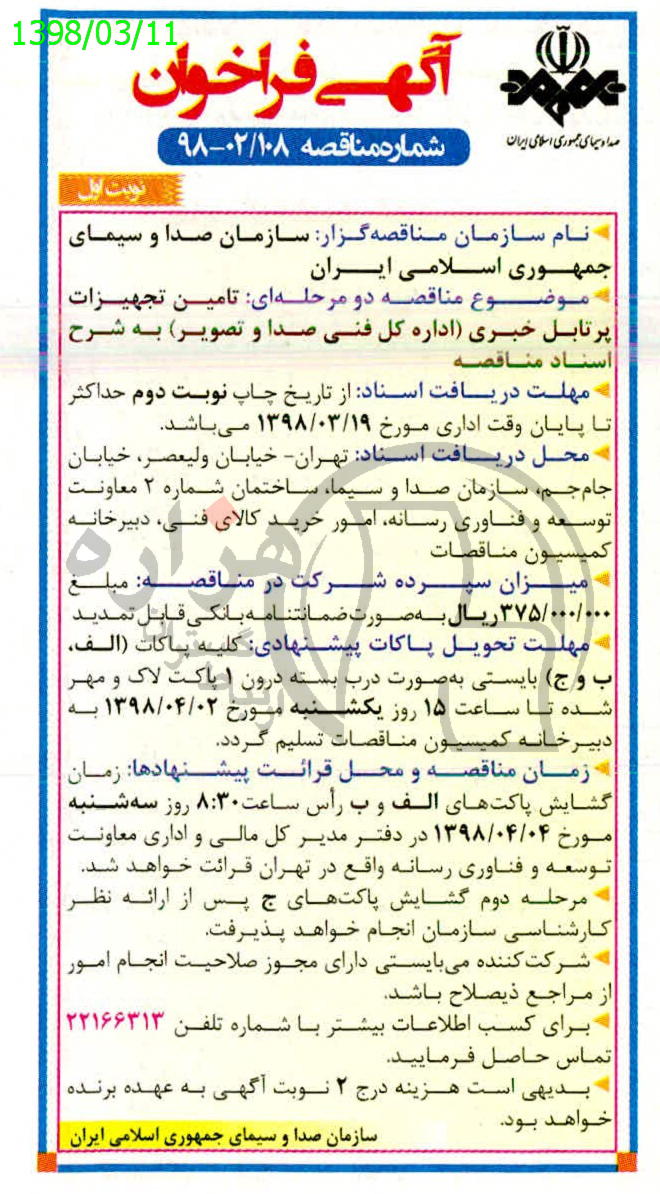 1398/03/11
صدا و سیمای جمهوری اسلامی ایران
آگهی فراخوان
شماره مناقصه ۹۸-۰۲/۱۰۸
نوبت اول
نام سازمان مناقصه‌گزار: سازمان صدا و سیمای
جمهوری اسلامی ایران
موضوع مناقصه دو مرحله‌ای: تامین تجهیزات
پرتابل خبری (اداره کل فنی صدا و تصویر) به شرح
اسناد مناقصه
مهلت دریافت اسناد: از تاریخ چاپ نوبت دوم حداکثر
تا پایان وقت اداری مورخ ۱۳۹۸/۰۳/۱۹ می‌باشد.
محل دریافت اسناد: تهران- خیابان ولیعصر، خیابان
جام‌جم، سازمان صدا و سیما، ساختمان شماره ۲ معاونت
توسعه و فناوری رسانه، امور خرید کالای فنی، دبیرخانه
کمیسیون مناقصات
میزان سپرده شرکت در مناقصه: مبلغ
۳۷۵/۰۰۰/۰۰۰ریال به‌صورت ضمانتنامه بانکی قابل تمدید
مهلت تحویل پاکات پیشنهادی: کلیه پاکات (الف،
ب و ج) بایستی به‌صورت درب بسته درون ۱ پاکت لاک و مهر
شده تا ساعت ۱۵ روز یکشنبه مورخ ۱۳۹۸/۰۴/۰۲ به
دبیرخانه کمیسیون مناقصات تسلیم گردد.
زمان مناقصه و محل قرائت پیشنهادها: زمان
گشایش پاکت‌های الف و ب رأس ساعت۸:۳۰ روز سه‌شنبه
مورخ ۱۳۹۸/۰۴/۰۴ در دفتر مدیر کل مالی و اداری معاونت
توسعه و فناوری رسانه واقع در تهران قرائت خواهد شد.
مرحله دوم گشایش پاکت‌های ج پس از ارائه نظر
کارشناسی سازمان انجام خواهد پذیرفت.
شرکت‌کننده می‌بایستی دارای مجوز صلاحیت انجام امور
از مراجع ذیصلاح باشد.
برای کسب اطلاعات بیشتر با شماره تلفن ۲۲۱۶۶۳۱۳
تماس حاصل فرمایید.
بدیهی است هزینه درج ۲ نوبت آگهی به عهده برنده
خواهد بود.
سازمان صدا و سیمای جمهوری اسلامی ایران
هزاره